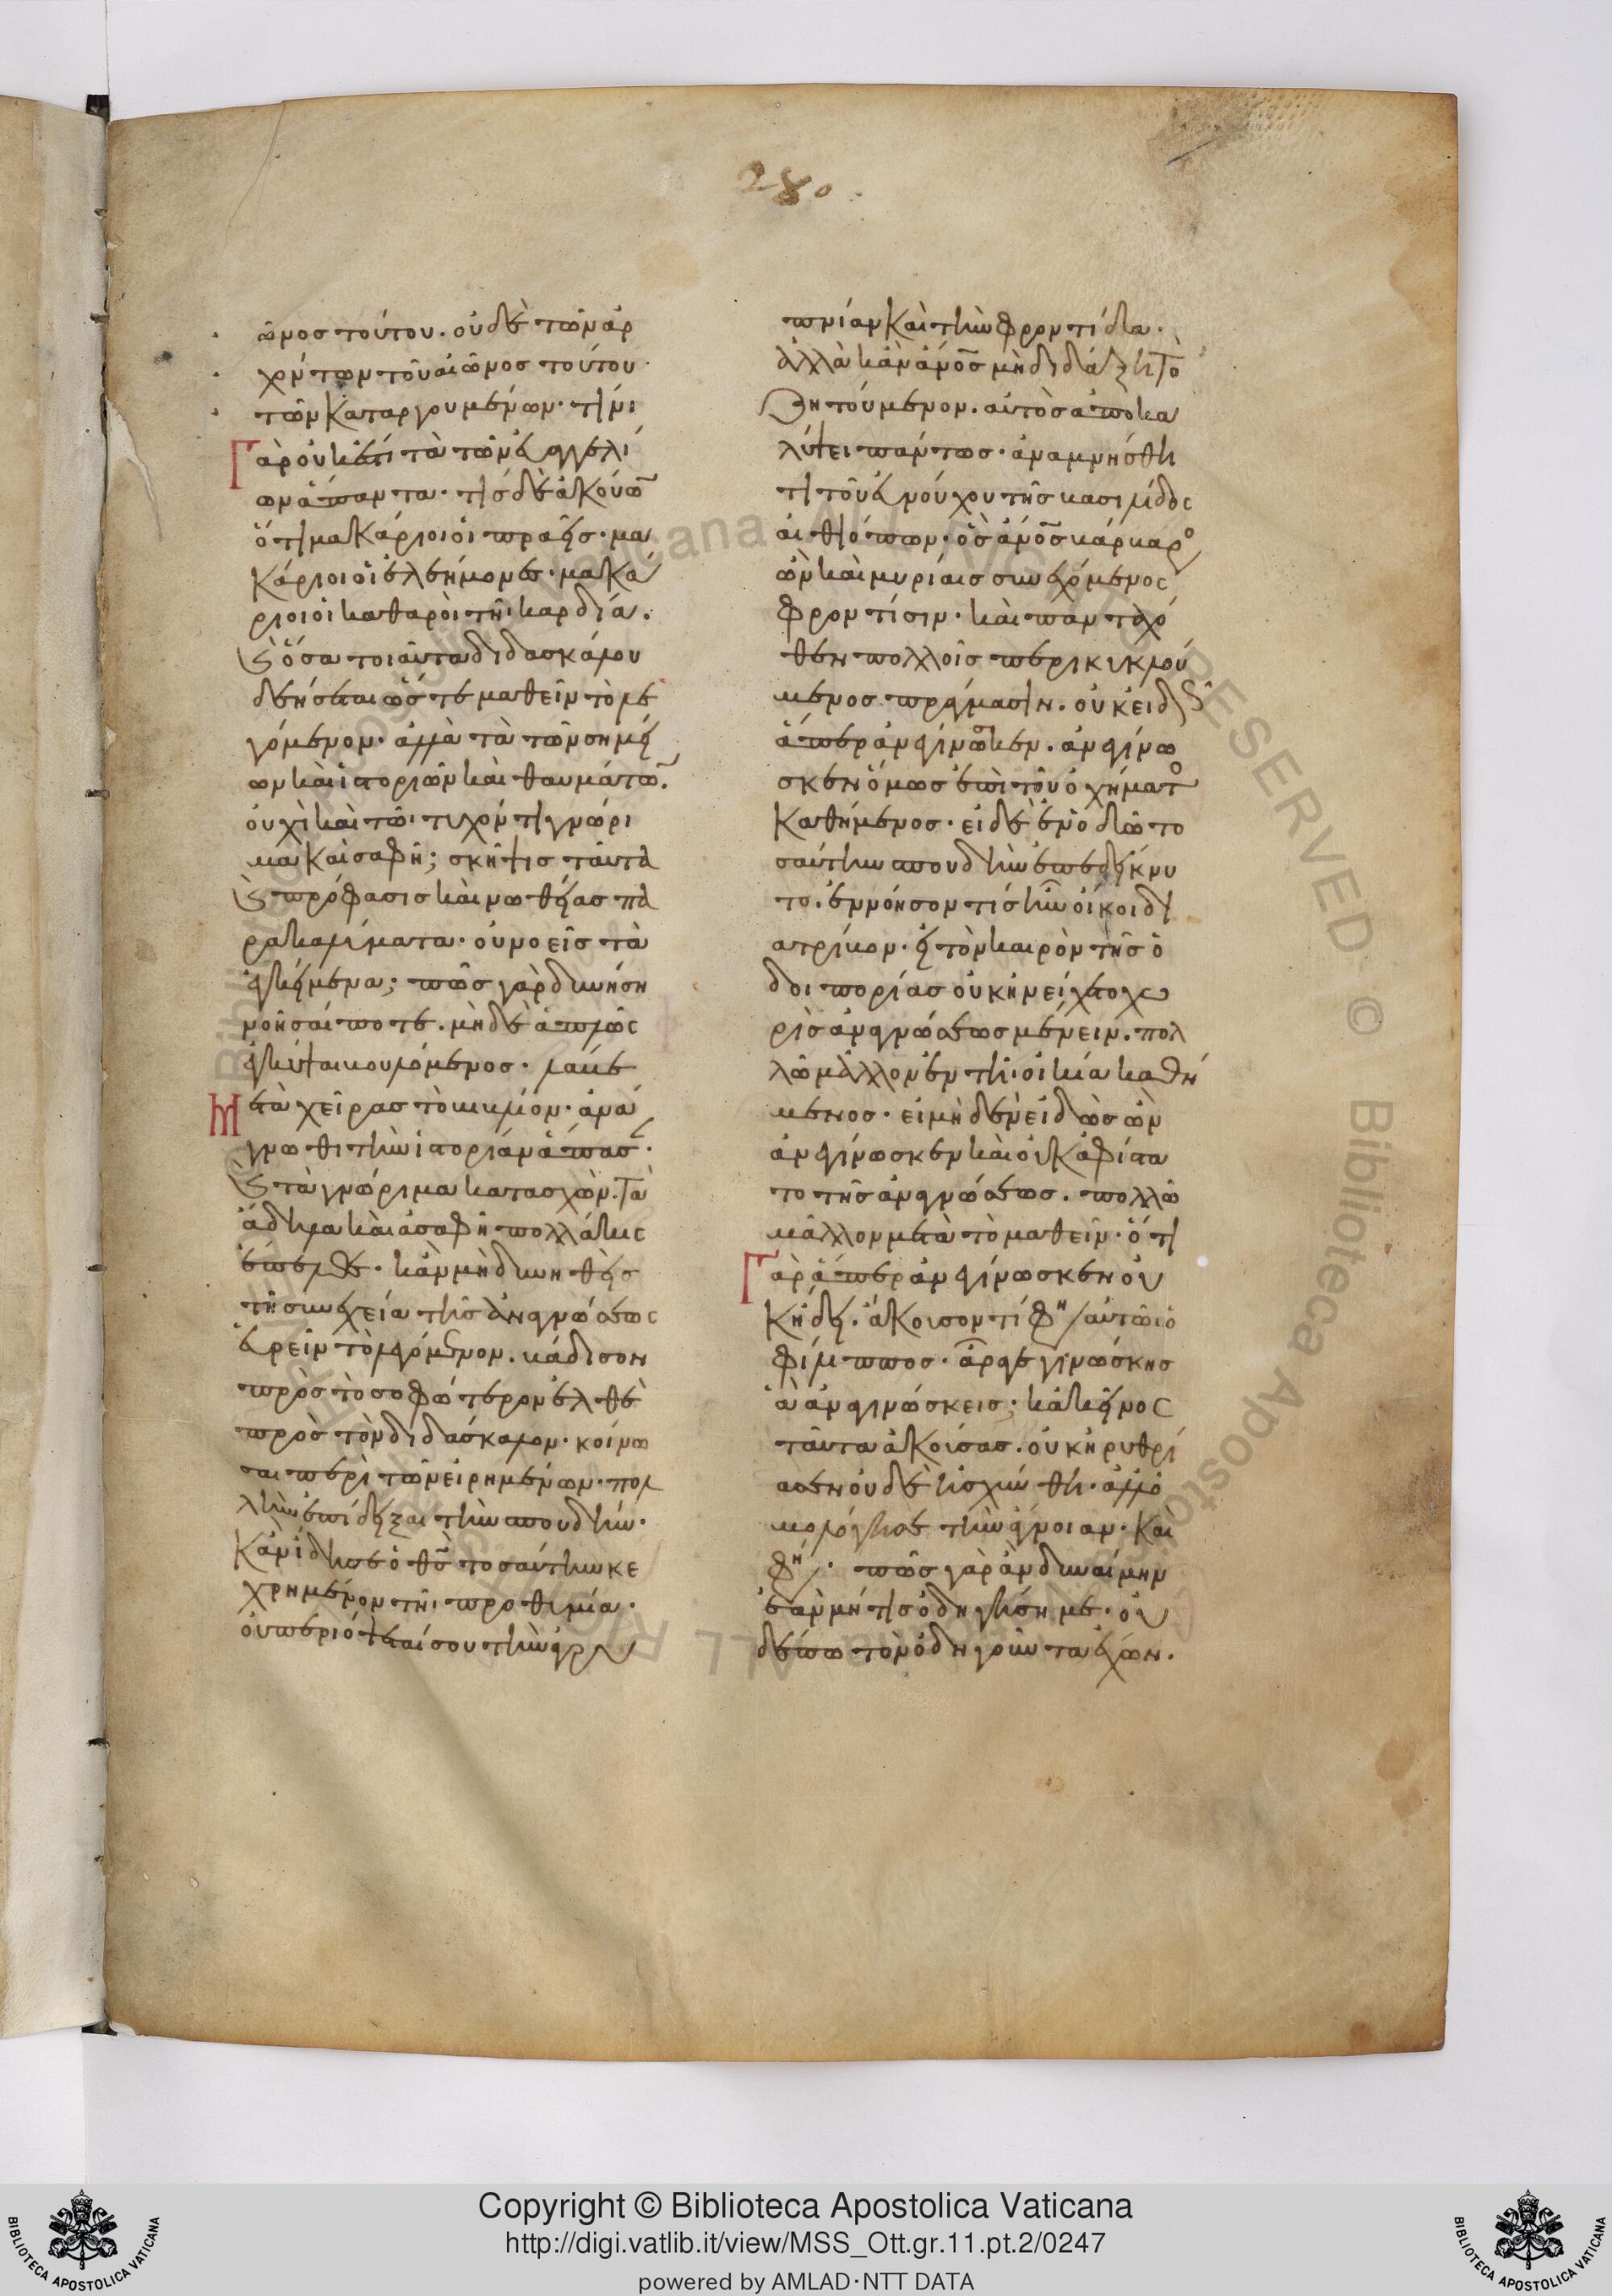 280.
ῶνος τούτου. οὐδὲ τῶν ἀρ
χόντων τοῦ αἰῶνος τούτου
τῶν καταργουμένων. τίνι
γὰρ οὐκ ἔστι τὰ τῶν εὐαγγελί
ων ἅπαντα. τίς δὲ ἀκούω̅
ὅτι μακάριοι οἱ πραεῖς. μα
κάριοι οἱ ἐλεήμονες. μακά
ριοι οἱ καθαροὶ τῆι καρδία.
ϗ ὅσα τοιαῦτα διδασκάλου
δεήσεται ὥστε μαθεῖν τὸ λε
γόμενον. ἀλλὰ τὰ τῶν σημεί
ων καὶ ἱστοριῶν καὶ θαυμάτω̅.
οὐχὶ καὶ τῶι τυχόντι γνώρι
μα καὶ σαφῆ; σκῆψις ταῦτα
ϗ πρόφασις καὶ νωθείας πα
ρακαλύματα. οὐ νοεῖς τὰ
ἐγκείμενα; πῶς γὰρ δυνήση
νοῆσαί ποτε. μὴ δὲ ἁπλῶς
ἐγκύψαι βουλόμενος. λάβε
μετὰ χεῖρας τὸ βιβλίον. ἀνά
γνωθι τὴν ἱστορίαν ἅπασ̅.
ϗ τὰ γνώριμα κατασχὼν. τὰ
ἄδηλα καὶ ἀσαφῆ πολλάκις
ἔπελθε. κἂν μὴ δυνηθῆς
τῆ συνεχεία τῆς ἀναγνώσεως
εὑρεῖν τὸ λεγόμενον. βάδισον
πρὸς τὸ σοφώτερον ἐλθὲ
πρὸς τὸν διδάσκαλον. κοίνω
σαι περὶ τῶν εἰρημένων. πολ
λὴν ἐπίδειξαι τὴν σπουδήν.
κἂν ἴδη σε ὁ θ̅ς̅ τοσαύτη κε
χρημένον τῆι προθυμία.
οὐ περιόψεταί σου τὴν ἀγρυ
πνίαν καὶ τὴν φροντίδα.
ἀλλὰ κἂν ἄν̅ο̅ς̅ μὴ διδάξη τὸ
ζητούμενον. αὐτὸς ἀποκα
λύψει πάντως. ἀναμνήσθη
τι τοῦ εὐνούχου τῆς βασιλίδος
αἰθιόπων. ὃς ἄν̅ο̅ς̅ βάρβαρο
ὢν καὶ μυρίαις συνεχόμενος
φροντίσιν. καὶ πανταχό
θεν πολλοῖς περικυκλού
μενος πράγμασιν. οὐκ εἰδὼ̅
ἅπερ ἀνεγίνωσκεν. ἀνεγίνω
σκεν ὅμως ἐπὶ τοῦ ὀχήματο
καθήμενος. εἰ δὲ ἐν ὁδῶ το
σαύτην σπουδὴν ἐπεδείκνυ
το. ἐννόησον τίς ἦν οἴκοι δι
ατρίβων. εἰ τὸν καιρὸν τῆς ὁ
δοιπορίας οὐκ ἠνείχετο χω
ρὶς ἀναγνώσεως μένειν. πολ
λῶ μᾶλλον ἐν τῆι οἰκία καθή
μενος. εἰ μηδὲν εἰδὼς ὧν
ἀνεγίνωσκεν καὶ οὐκ ἀφίστα
το τῆς ἀναγνώσεως. πολλῶ
μᾶλλον μετὰ τὸ μαθεῖν. ὅτι
γὰρ ἅπερ ἀνεγίνωσκεν οὐ
κ ἤδει. ἄκουσον τί φη αὐτῶι ὁ
φίλιππος. ἆρα γε γινώσκης
ἃ ἀναγινώσκεις; κἀκεῖνος
ταῦτα ἀκούσας. οὐκ ἠρυθρί
ασεν οὐδὲ ἠσχύνθη. ἀλλ' ὁ
μολόγησε τὴν ἄγνοιαν. καὶ
φη. πῶς γὰρ ἂν δυναίμην
ἐὰν μή τις ὁδηγήση με. οὐ
δέπω τὸν ὁδηγοῦντα ἔχων.
Copyright © Biblioteca Apostolica Vaticana
http://digi.vatlib.it/view/MSS_Ott.gr.11.pt.2/0247
powered by AMLAD·NTT DATA